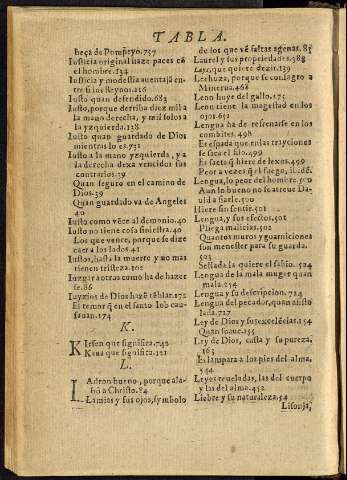 TABLA.
beça de Pompeyo.737
Iusticia original haze paces cõ
el hombre.134
Iusticia y modestia auentajã en-
tre si los Reynos.216
Iusto quan defendido.683
Iusto, porque derriba diez mil a
la mano derecha, y mil solos a
la yzquierda.138
Iusto quan guardado de Dios
mientras lo es.731
Iusto a la mano yzquierda, y a
la derecha dexa vencidos sus
contrarios.39
Quan seguro en el camino de
Dios.39
Quan guardado va de Angeles
40
Iusto como vẽce al demonio.40
Iusto no tiene cosa siniestra.40
Los que vence, porque se dize
caer a los lados.41
Iustos, hasta la muerte no mas
tienen tristeza.101
Iuzgar a otros como ha de hazer
se.86
Iuyzios de Dios hazẽ tẽblar.172
El temor q̃ en el santo Iob cau-
sauan.174
K.
Kiesen que significa.742
Kana que significa.121
L.
Ladron bueno, porque ala-
bò a Christo.84
Lamias y sus ojos, symbolo
de los que vẽ faltas agenas.85
Laurel y sus propriedades.386
que quiere dezir.139
Lechuza, porque se consagro a
Minerua.468
Leon huye del gallo.175
Leon tiene la magestad en los
ojos.651
Lengua ha de refrenarse en los
combites.498
Es espada que en las trayciones
se saca el filo.499
Es saeta q̃ hiere de lexos.499
Peor a vezes q̃ el fuego,
Lengua, lo peor del hombre.500
Aun lo bueno no se atreue Da-
uid a fiarle.500
Hiere sin sentir.501
Lengua, y sus efectos.501
Pliega malicias.502
Quantos muros y guarniciones
son menester para su guarda.
503
Sellada la quiere el sabio.504
Lengua de la mala muger quan
mala.254
Lengua y su descripcion.724
Lengua del pecador, quan
lada.727
Ley de Dios y sus excelẽcias.154
Quan suaue.155
Ley de Dios, casta y su pureza,
163
Es lampara a los pies del alma.
544
Leyes reueladas, las del cuerpo
y las del alma.452
Liebre y su naturaleza.54
Lisonja,